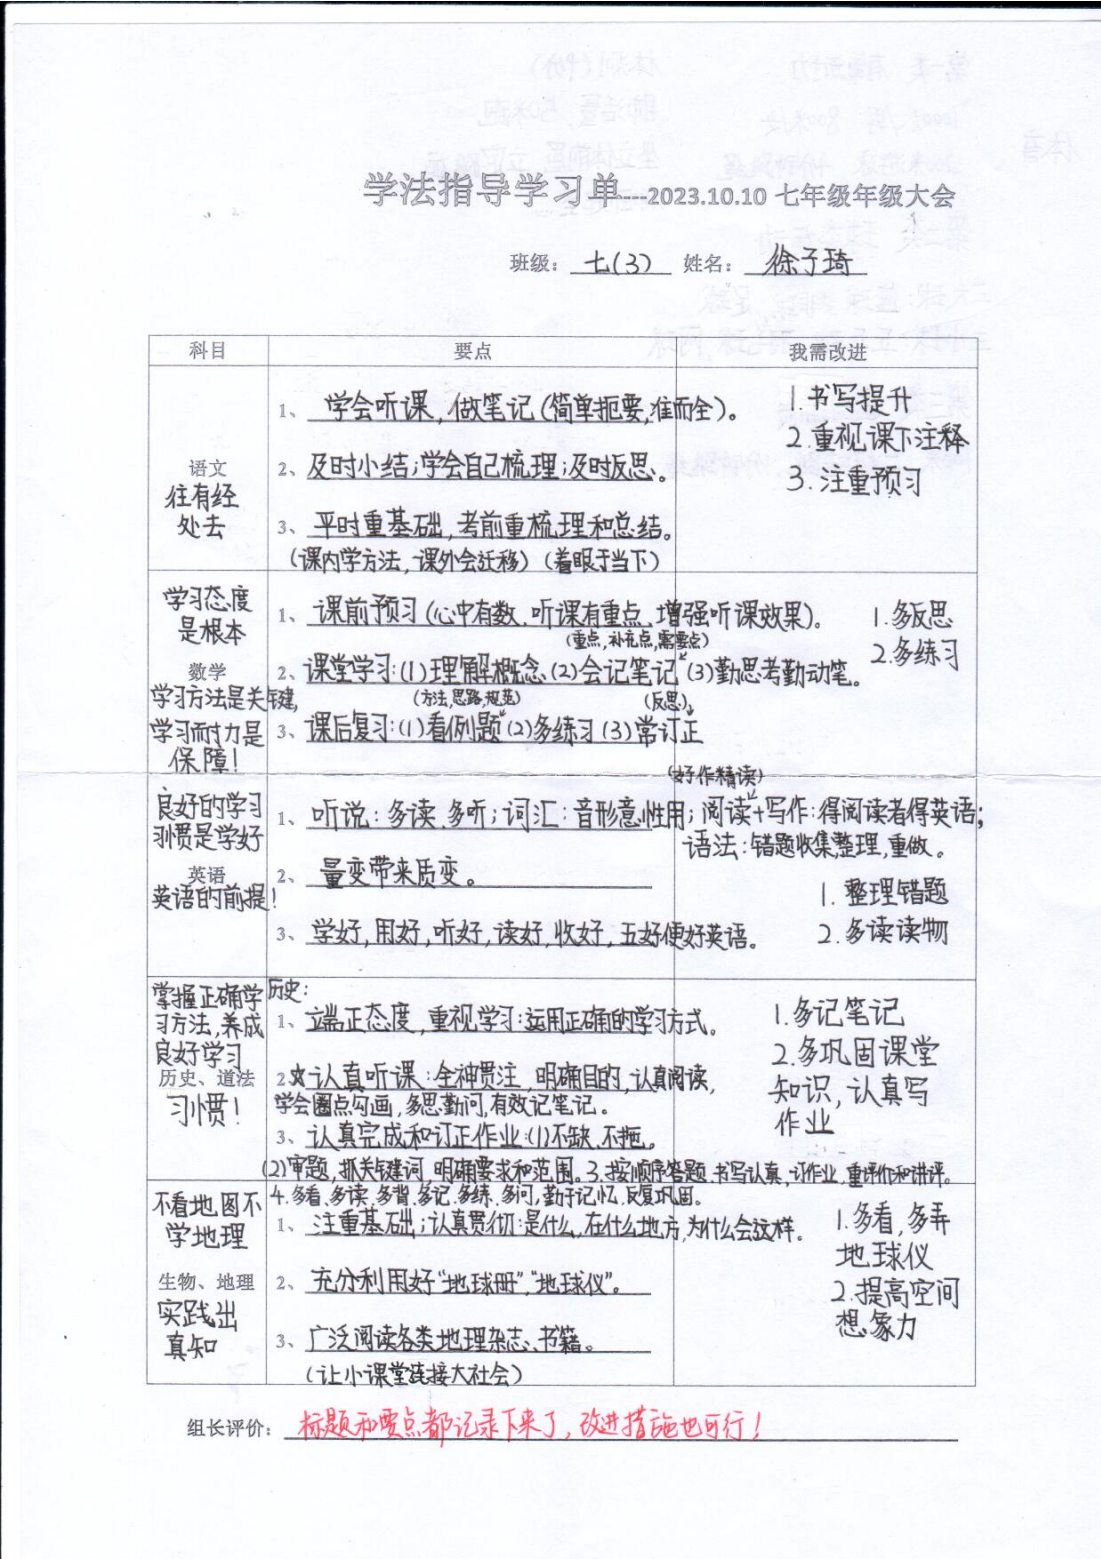 学法指导学习单---2023.10.10 七年级年级大会
班级：七(3) 姓名：徐子琦
科目 要点 我需改进
语文
往有经
处去
1、学会听课,做笔记(简单扼要,准而全)。
2、及时小结;学会自己梳理;及时反思。
3、平时重基础,考前重梳理和总结。
(课内学方法,课外会迁移)(着眼于当下)
1.书写提升
2.重视课下注释
3.注重预习
学习态度
是根本
数学
学习方法是关键,
学习耐力是
保障!
1、课前预习(心中有数、听课有重点、增强听课效果)。
(重点,补充点,需要点)
2、课堂学习:(1)理解概念(2)会记笔记(3)勤思考勤动笔。
(方法,思路,规范) (反思)
3、课后复习:(1)看例题(2)多练习(3)常订正
1.多反思
2.多练习
良好的学习
习惯是学好
英语
英语的前提!
(好作精读)
1、听说:多读、多听;词汇:音形意性用;阅读+写作:得阅读者得英语;
语法:错题收集,整理,重做。
2、量变带来质变。
3、学好,用好,听好,读好,收好,五好便好英语。
1.整理错题
2.多读读物
掌握正确学
习方法,养成
良好学习
历史、道法
习惯!
历史:
1、端正态度,重视学习:运用正确的学习方式。
2、认真听课:全神贯注,明确目的,认真阅读,
学会圈点勾画,多思勤问,有效记笔记。
3、认真完成和订正作业:(1)不缺、不拖。
(2)审题,抓关键词,明确要求和范围。3.按顺序答题、书写认真,订作业,重评价和讲评。
4.多看、多读、多背、多记、多练、多问,勤于记忆、反复巩固。
1.多记笔记
2.多巩固课堂
知识,认真写
作业
不看地图不
学地理
生物、地理
实践出
真知
1、注重基础;认真贯彻:是什么,在什么地方,为什么会这样。
2、充分利用好“地球册”“地球仪”。
3、广泛阅读各类地理杂志、书籍。
(让小课堂链接大社会)
1.多看,多弄
地球仪
2.提高空间
想象力
组长评价：标题和要点都记录下来了,改进措施也可行!